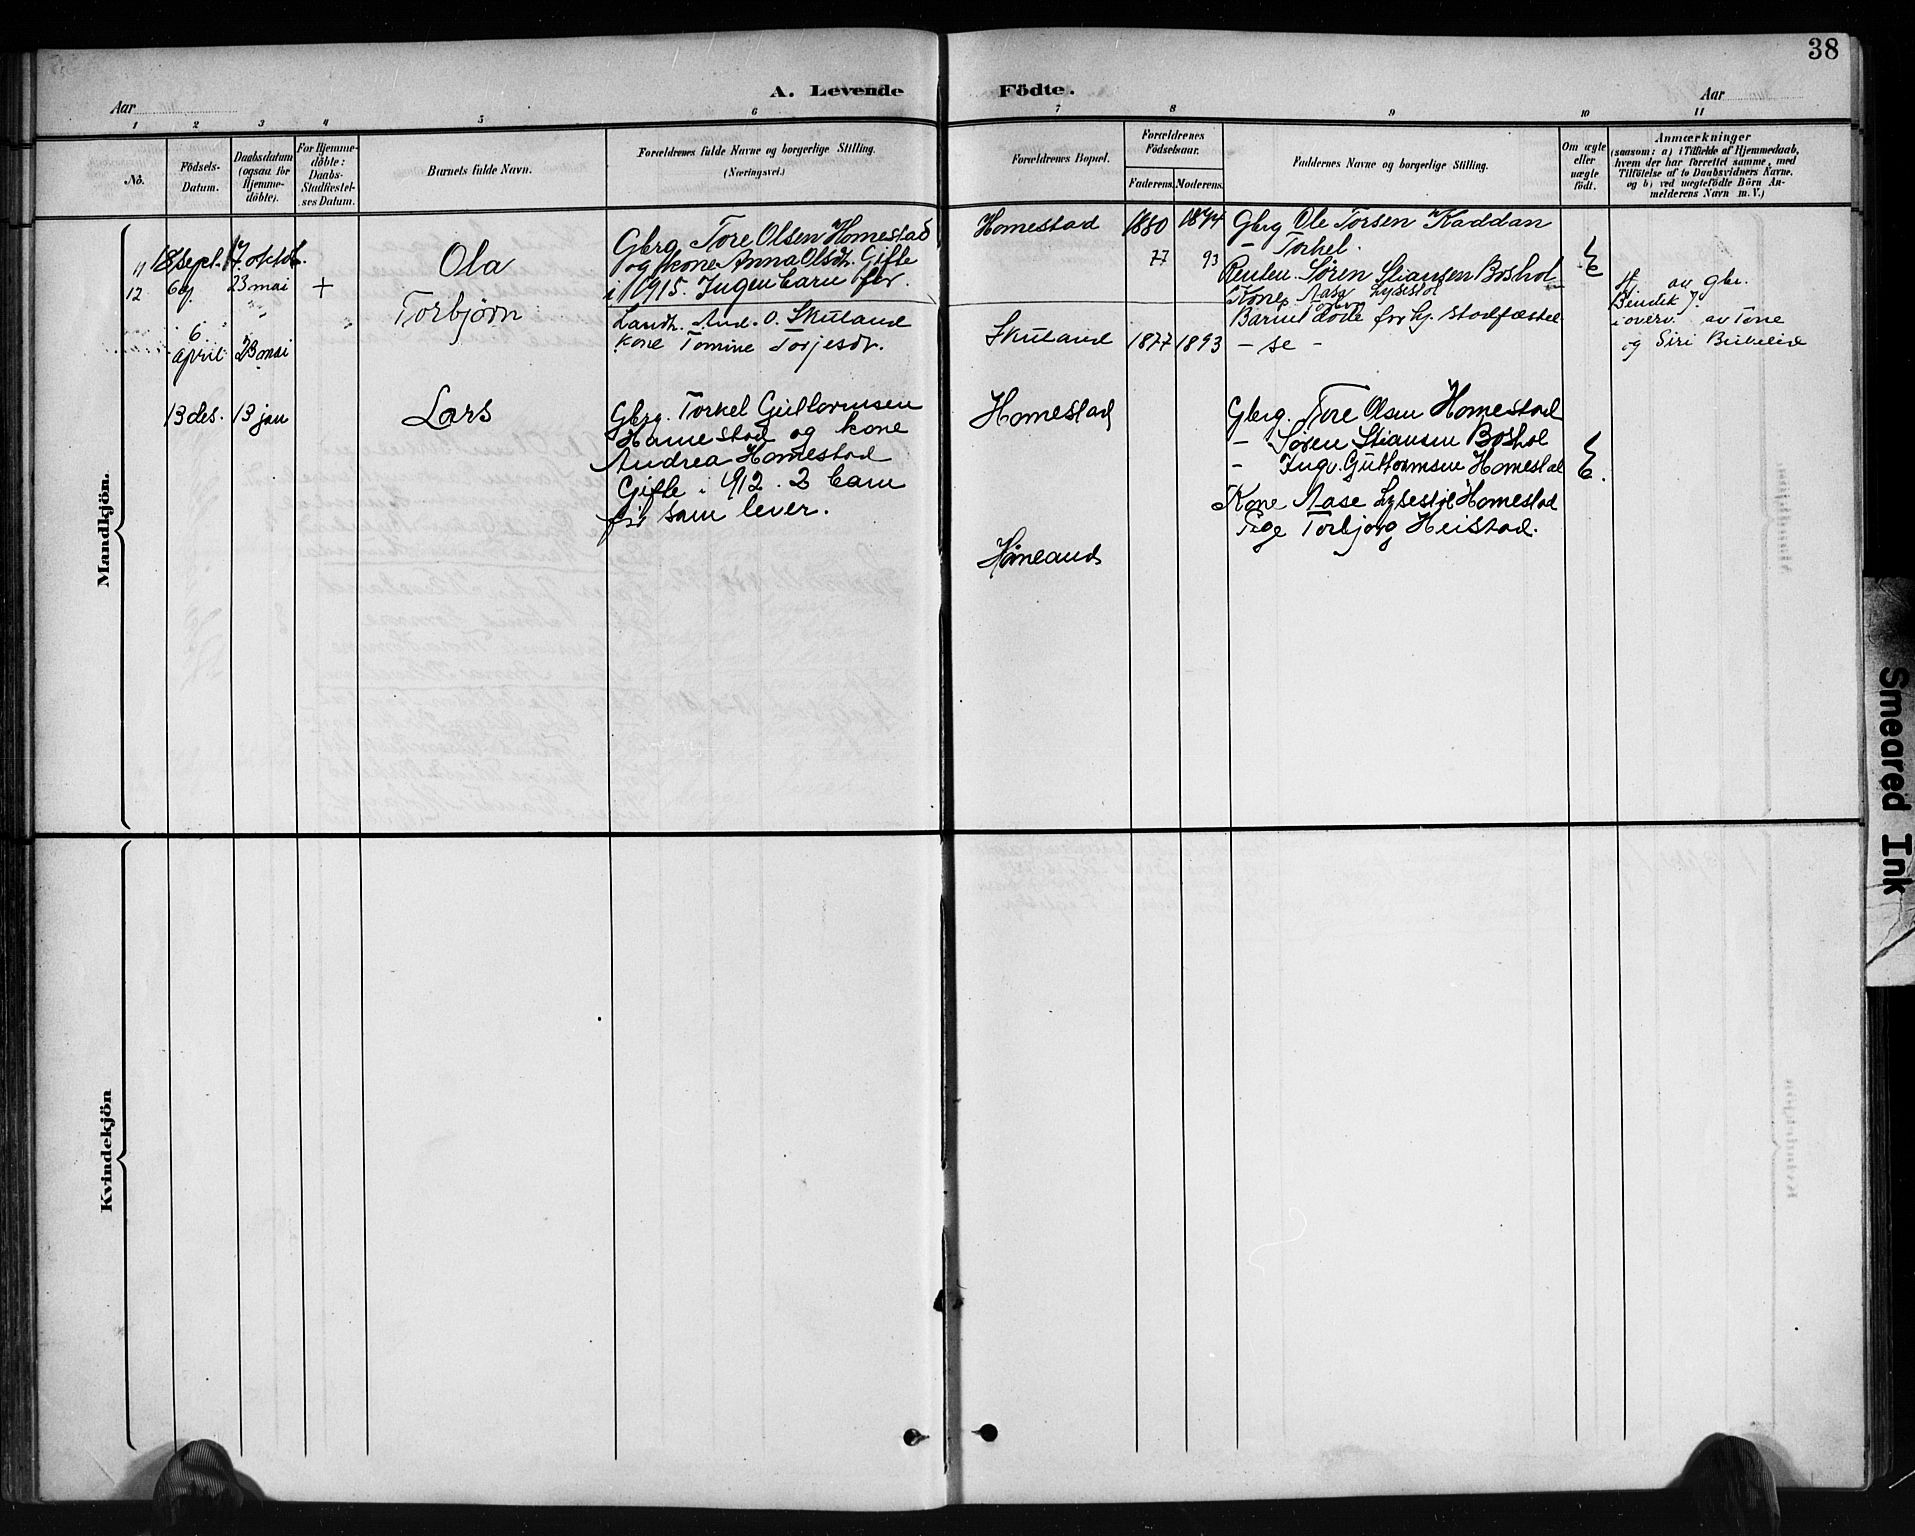 38
A. Levende Födte.
Aar
Aar
1 2 3 4 5 6 7 8 9 10 11
No.
Födsels-
Datum.
Daabsdatum
(ogsaa for
Hjemme-
döbte).
For Hjemme-
döbte:
Daabs-
Stadfæstel-
ses Datum.
Barnets fulde Navn.
Forældrenes fulde Navne og borgerlige Stilling.
(Næringsvei.)
Forældrenes Bopæl.
Forældrenes
Födselsaar.
Faderens. Moderens.
Faddernes Navne og borgerlige Stilling.
Om ægte
eller
uægte
födt.
Anmærkninger
(saasom: a) i Tilfælde af Hjemmedaab,
hvem der har forrettet samme, med
Tilföielse af to Daabsvidners Navne,
og b) ved uægtefödte Börn An-
melderens Navn m. V.)
Mandkjön.
11 18 sept. 17 oktob.
Ola
Gbrg. Tore Olsen Homestad
og kone Anna Olsdt. Gifte
i 1915. Ingen barn för.
Homestad
1880 1894
Gbrg Ole Torsen Kaddan
- Torkel.
Søren Stiansen Boshol
Kone Aase Lysestøl
12 23 mai +
Torbjørn
77 93
Barnet døde før hj. stadfæstel
- se -
6 april 23 mai
Landh. And. O. Skuland
kone Tomine Torjesdt.
Skuland 1877 1893
Hj. av gbr.
Bendik
i overv. av Tone
og Siri
13 des. 13 jan
Lars
Gbrg. Torkel Guttormsen
Homestad og kone
Andrea Homestad
Gifte i 912. 2 barn
för som lever.
Homestad
Gbrg. Tore Olsen Homestad
- Søren Stiansen Boshol
- Ingv. Guttormsen Homestad
Kone Aase Lysestøl Homestad
Pige Torbjorg Heistad.
E
E.
Kvindekjön
Smeared Ink